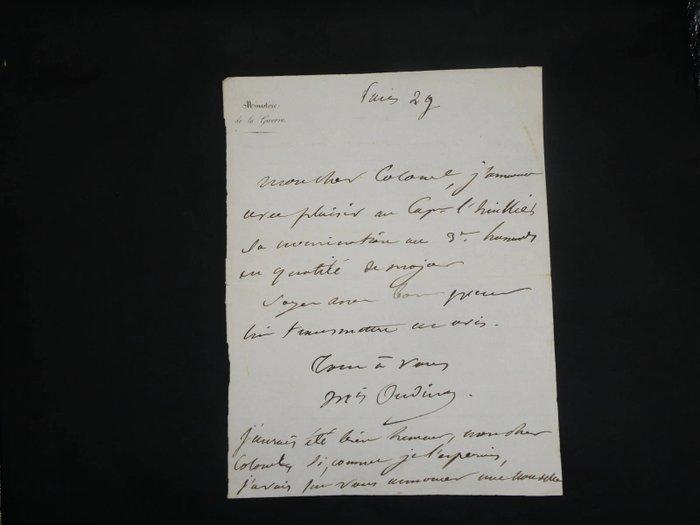 Ministère
de la Guerre.
Paris 29
mon cher Colonel, j'annonce
avec plaisir au Capne l'huillier
sa nomination au 3me hussards
en qualité de major
Soyez assez bon pour
lui transmettre cet avis.
Tout à vous
Oudinot.
J'aurais été bien heureux, mon cher
Colonel, si, comme je l'espérais,
j'avais pu vous annoncer une nouvelle